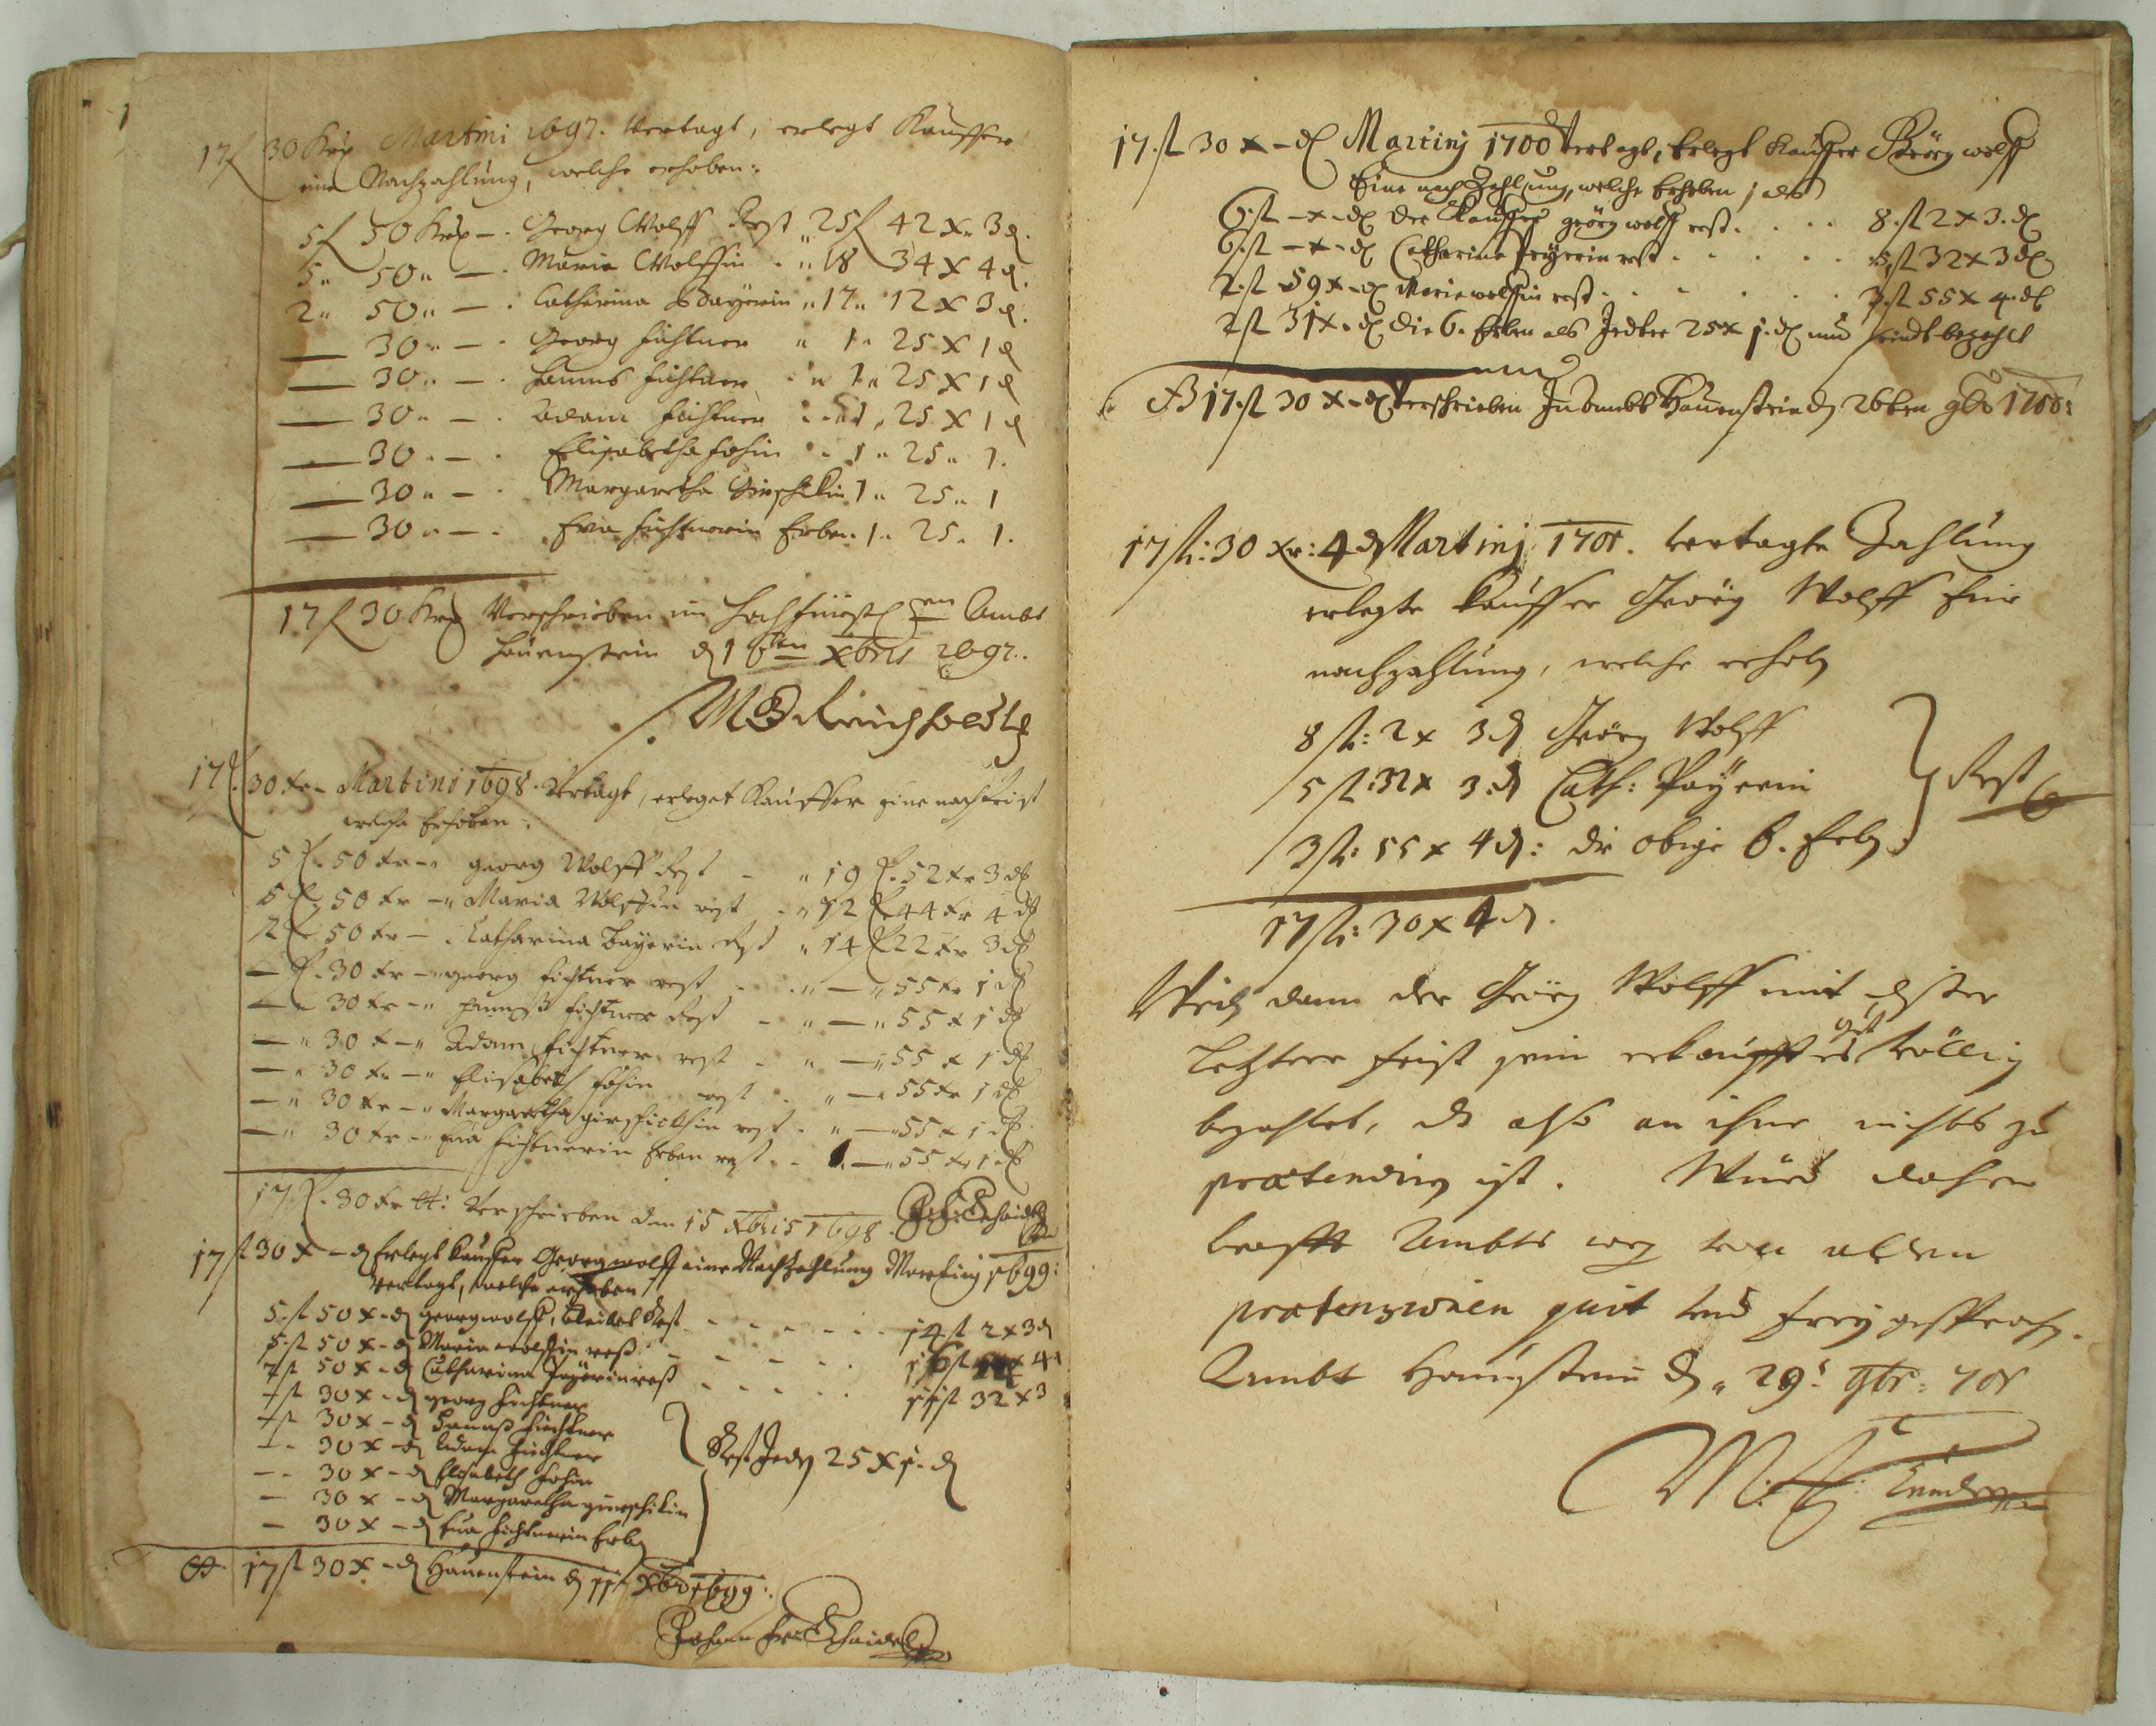 17 f 30 Krx Martini 1697. Vertagt, erlegt Kauffer
eine Nachzahlung, welche erhoben:
5 f 50 Krx —. Georg Wolff Rest 25 f 42 x 3 d.
5 " 50 " — . Maria Wolffin . " 18 34 x 4 d.
2 " 50 " — . Catharina Bayerin " 17 " 12 x 3 d.
— 30 " — . Georg Fichtner " 1 " 25 x 1 d
— 30 " — . Hannß Fichtner . " 1 " 25 x 1 d
— 30 " — . Adam Fichtner . . 1 " 25 x 1 d
— 30 " — . Elisabetha . 1 " 25 " 1.
— 30 " — . Margaretha 1 " 25 " 1
— 30 " — . Eva Fichtnerin Erben 1 " 25 " 1.
17 f 30 Krx Verschrieben im Hochfürstl en Ambt
Hauenstein d 16ten Xbris 1697.
17 f. 30 kr - Martini 1698. Vertagt, erleget Kauffer eine nachfrist
welche Erhoben:
5 f. 50 kr -" georg Wolff Rest - " 19 f. 52 kr 3 d
5 f. 50 kr -" Maria Wolffin rest - " 12 f 44 kr 4 d
2 f 50 kr - . Catharina Bayerin Rest " 14 f 22 kr 3 d
— f. 30 kr -" georg fichtner rest - . " — " 55 kr 1 d
— " 30 kr -" Hannß fichtner Rest - " — " 55 x 1 d
— " 30 x -" Adam fichtner rest - " — " 55 x 1 d
— " 30 kr -" Elisabeth rest - " — " 55 kr 1 d
— " 30 kr -" Margaretha rest - " — " 55 x 1 d
— " 30 kr -" Eva Fichtnerin Erben rest - . — " 55 kr 1 d
17 f. 30 kr Verschrieben den 15 Xbris 1698.
17 fl 30 x - d Erlegt kauffer Georg wolff eine Nachzahlung Martiny 1699:
Vertagt, welche erhoben
5. fl 50 x - d georg wolff, bleibet Rest - - - - - 14 fl 2 x 3 d
5. fl 50 x - d Maria wolffin rest - - - -
2 fl 50 x - d Catharina Payerin rest - - - - 11 fl 32 x 3
- fl 30 x - d georg fichtner
- fl 30 x - d Hannß fichtner
- - 30 x - d Adam Fichtner
- - 30 x - d Elisabeth
- 30 x - d Margaretha
- 30 x - d Eva fichtnerin Erben
Rest Jeder 25 x 1. d
17 fl 30 x - d Hauenstein d 11 Xbr 1699:
17. fl 30 x - d Martiny 1700 Vertagt, Erlegt kauffer Georg wolff
Eine nach Zahlung, welche Erhoben, als
6. fl - x - d Der Kauffer georg wolff rest. . . . 8. fl 2 x 3. d
6. fl - x - d Catharina Peyerin rest - - - - - 5. fl 32 x 3 d
2. fl 59 x - d Maria wolffin rest - - - - - 3. fl 55 x 4. d
2 fl 31 x - d die 6. Erben als Jeder 25 x 1. d und seindt bezahlt
17. fl 30 x - d Verschrieben In Ambt Hauenstein d 26ten 9br 1700:
17 fl: 30 xr: 4 d Martinj 1701. vertagte Zahlung
erlegte kauffer Georg Wolff eine
nachzahlung, welche erhoben
8 fl: 2 x 3 d Georg Wolff
5 fl: 32 x 3 d Cath: Payerin
3 fl: 55 x 4 d: die obige 6. Erben
Rest
17 fl: 30 x 4 d.
Weilen dann der Georg Wolff mit dießer
letzten frist sein erkaufftes gut völlig
bezahlet, d also an ihme nichts zu
prætendiren ist. Wird dahero
krafft Ambts weg von allen
prætensionen quit und frey gesprochen.
Ambt Hauenstein d. 29. 9br: 701